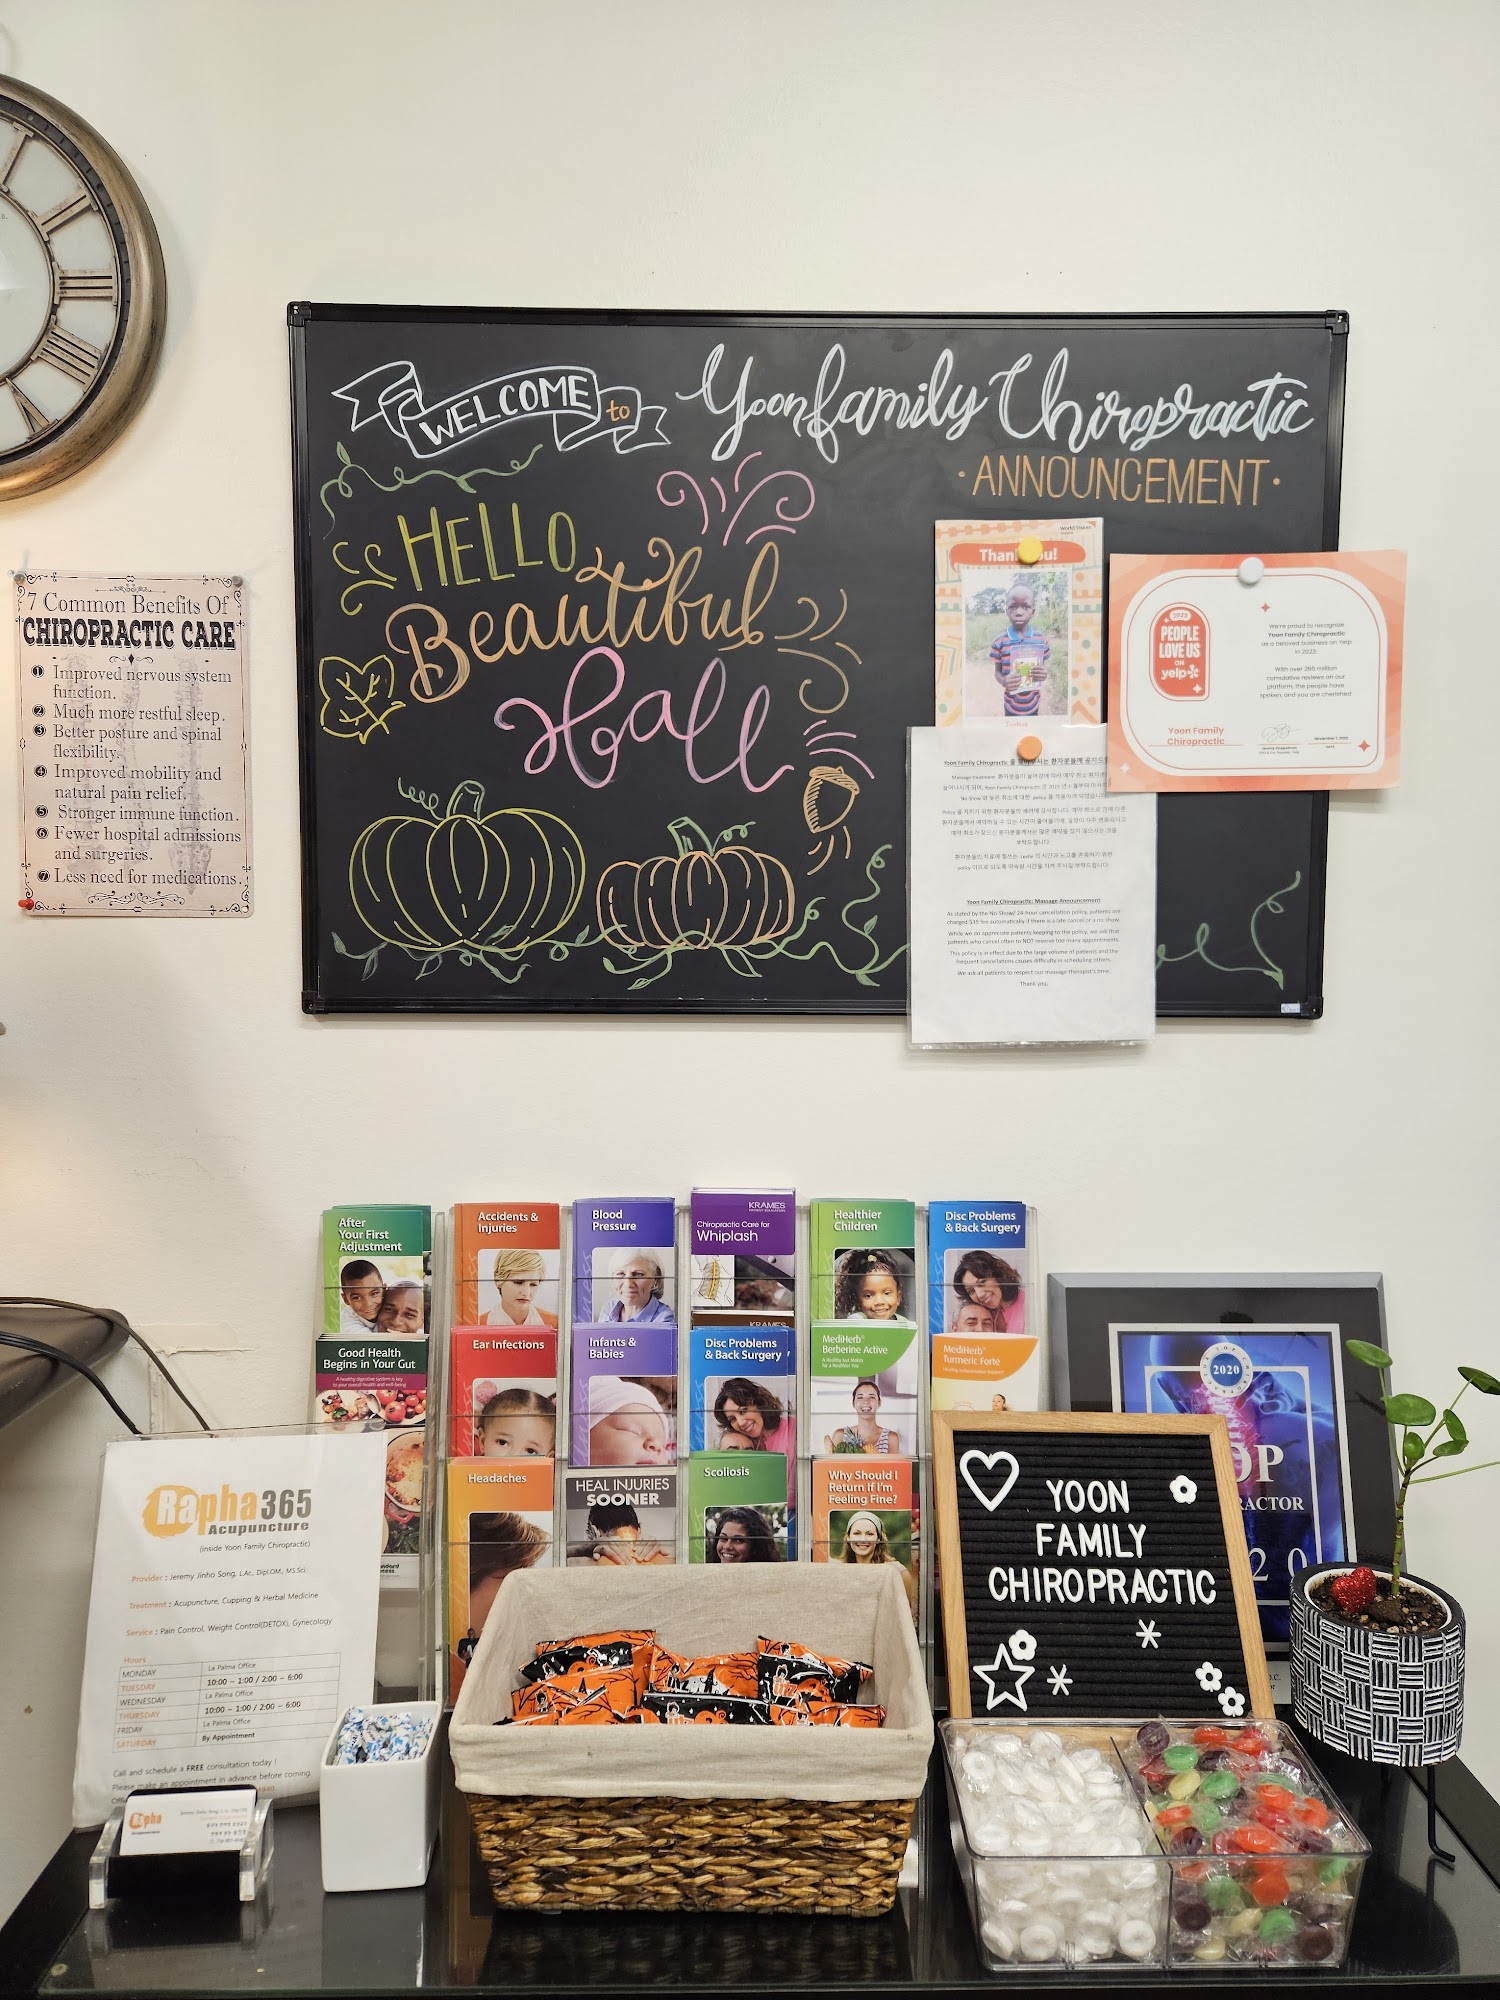 WELCOME to Yoon family Chiropractic
• ANNOUNCEMENT •
HELLO
Beautiful
Fall
World Vision
Thank You!
Joshua
2023
PEOPLE
LOVE US
ON
yelp
We're proud to recognize
Yoon Family Chiropractic
as a beloved business on Yelp
in 2023.
With over 265 million
cumulative reviews on our
platform, the people have
spoken, and you are cherished
Yoon Family
Chiropractic
November 1, 2023
DATE
Yoon Family Chiropractic: Massage Announcement
As stated by the No-Show/ 24-hour cancellation policy, patients are
charged $35 fee automatically if there is a late cancel or a no show.
While we do appreciate patients keeping to the policy, we ask that
patients who cancel often to NOT reserve too many appointments.
This policy is in effect due to the large volume of patients and the
frequent cancellations causes difficulty in scheduling others.
We ask all patients to respect our massage therapist's time,
Thank you.
7 Common Benefits Of
CHIROPRACTIC CARE
1 Improved nervous system
function.
2 Much more restful sleep.
3 Better posture and spinal
flexibility.
4 Improved mobility and
natural pain relief.
5 Stronger immune function.
6 Fewer hospital admissions
and surgeries.
7 Less need for medications.
After
Your First
Adjustment
Accidents &
Injuries
Blood
Pressure
KRAMES
PATIENT EDUCATION
Chiropractic Care for
Whiplash
Healthier
Children
Disc Problems
& Back Surgery
Good Health
Begins in Your Gut
A healthy digestive system is key
to your overall health and well-being
Ear Infections
Infants &
Babies
KRAMES
Disc Problems
& Back Surgery
MediHerb®
Berberine Active
A Healthy Gut Makes
for a Healthier You
MediHerb®
Turmeric Forte
Headaches
HEAL INJURIES
SOONER
Scoliosis
Why Should I
Return If I'm
Feeling Fine?
2020
YOON
FAMILY
CHIROPRACTIC
Rapha365
Acupuncture
(inside Yoon Family Chiropractic)
Provider : Jeremy Jinho Song, L.Ac, Dipl.OM., MS.Sci.
Treatment : Acupuncture, Cupping & Herbal Medicine
Service : Pain Control, Weight Control(DETOX), Gynecology
Hours
MONDAY La Palma Office
TUESDAY 10:00 – 1:00 / 2:00 – 6:00
WEDNESDAY La Palma Office
THURSDAY 10:00 – 1:00 / 2:00 – 6:00
FRIDAY La Palma Office
SATURDAY By Appointment
Call and schedule a FREE consultation today !
Please make an appointment in advance before coming.